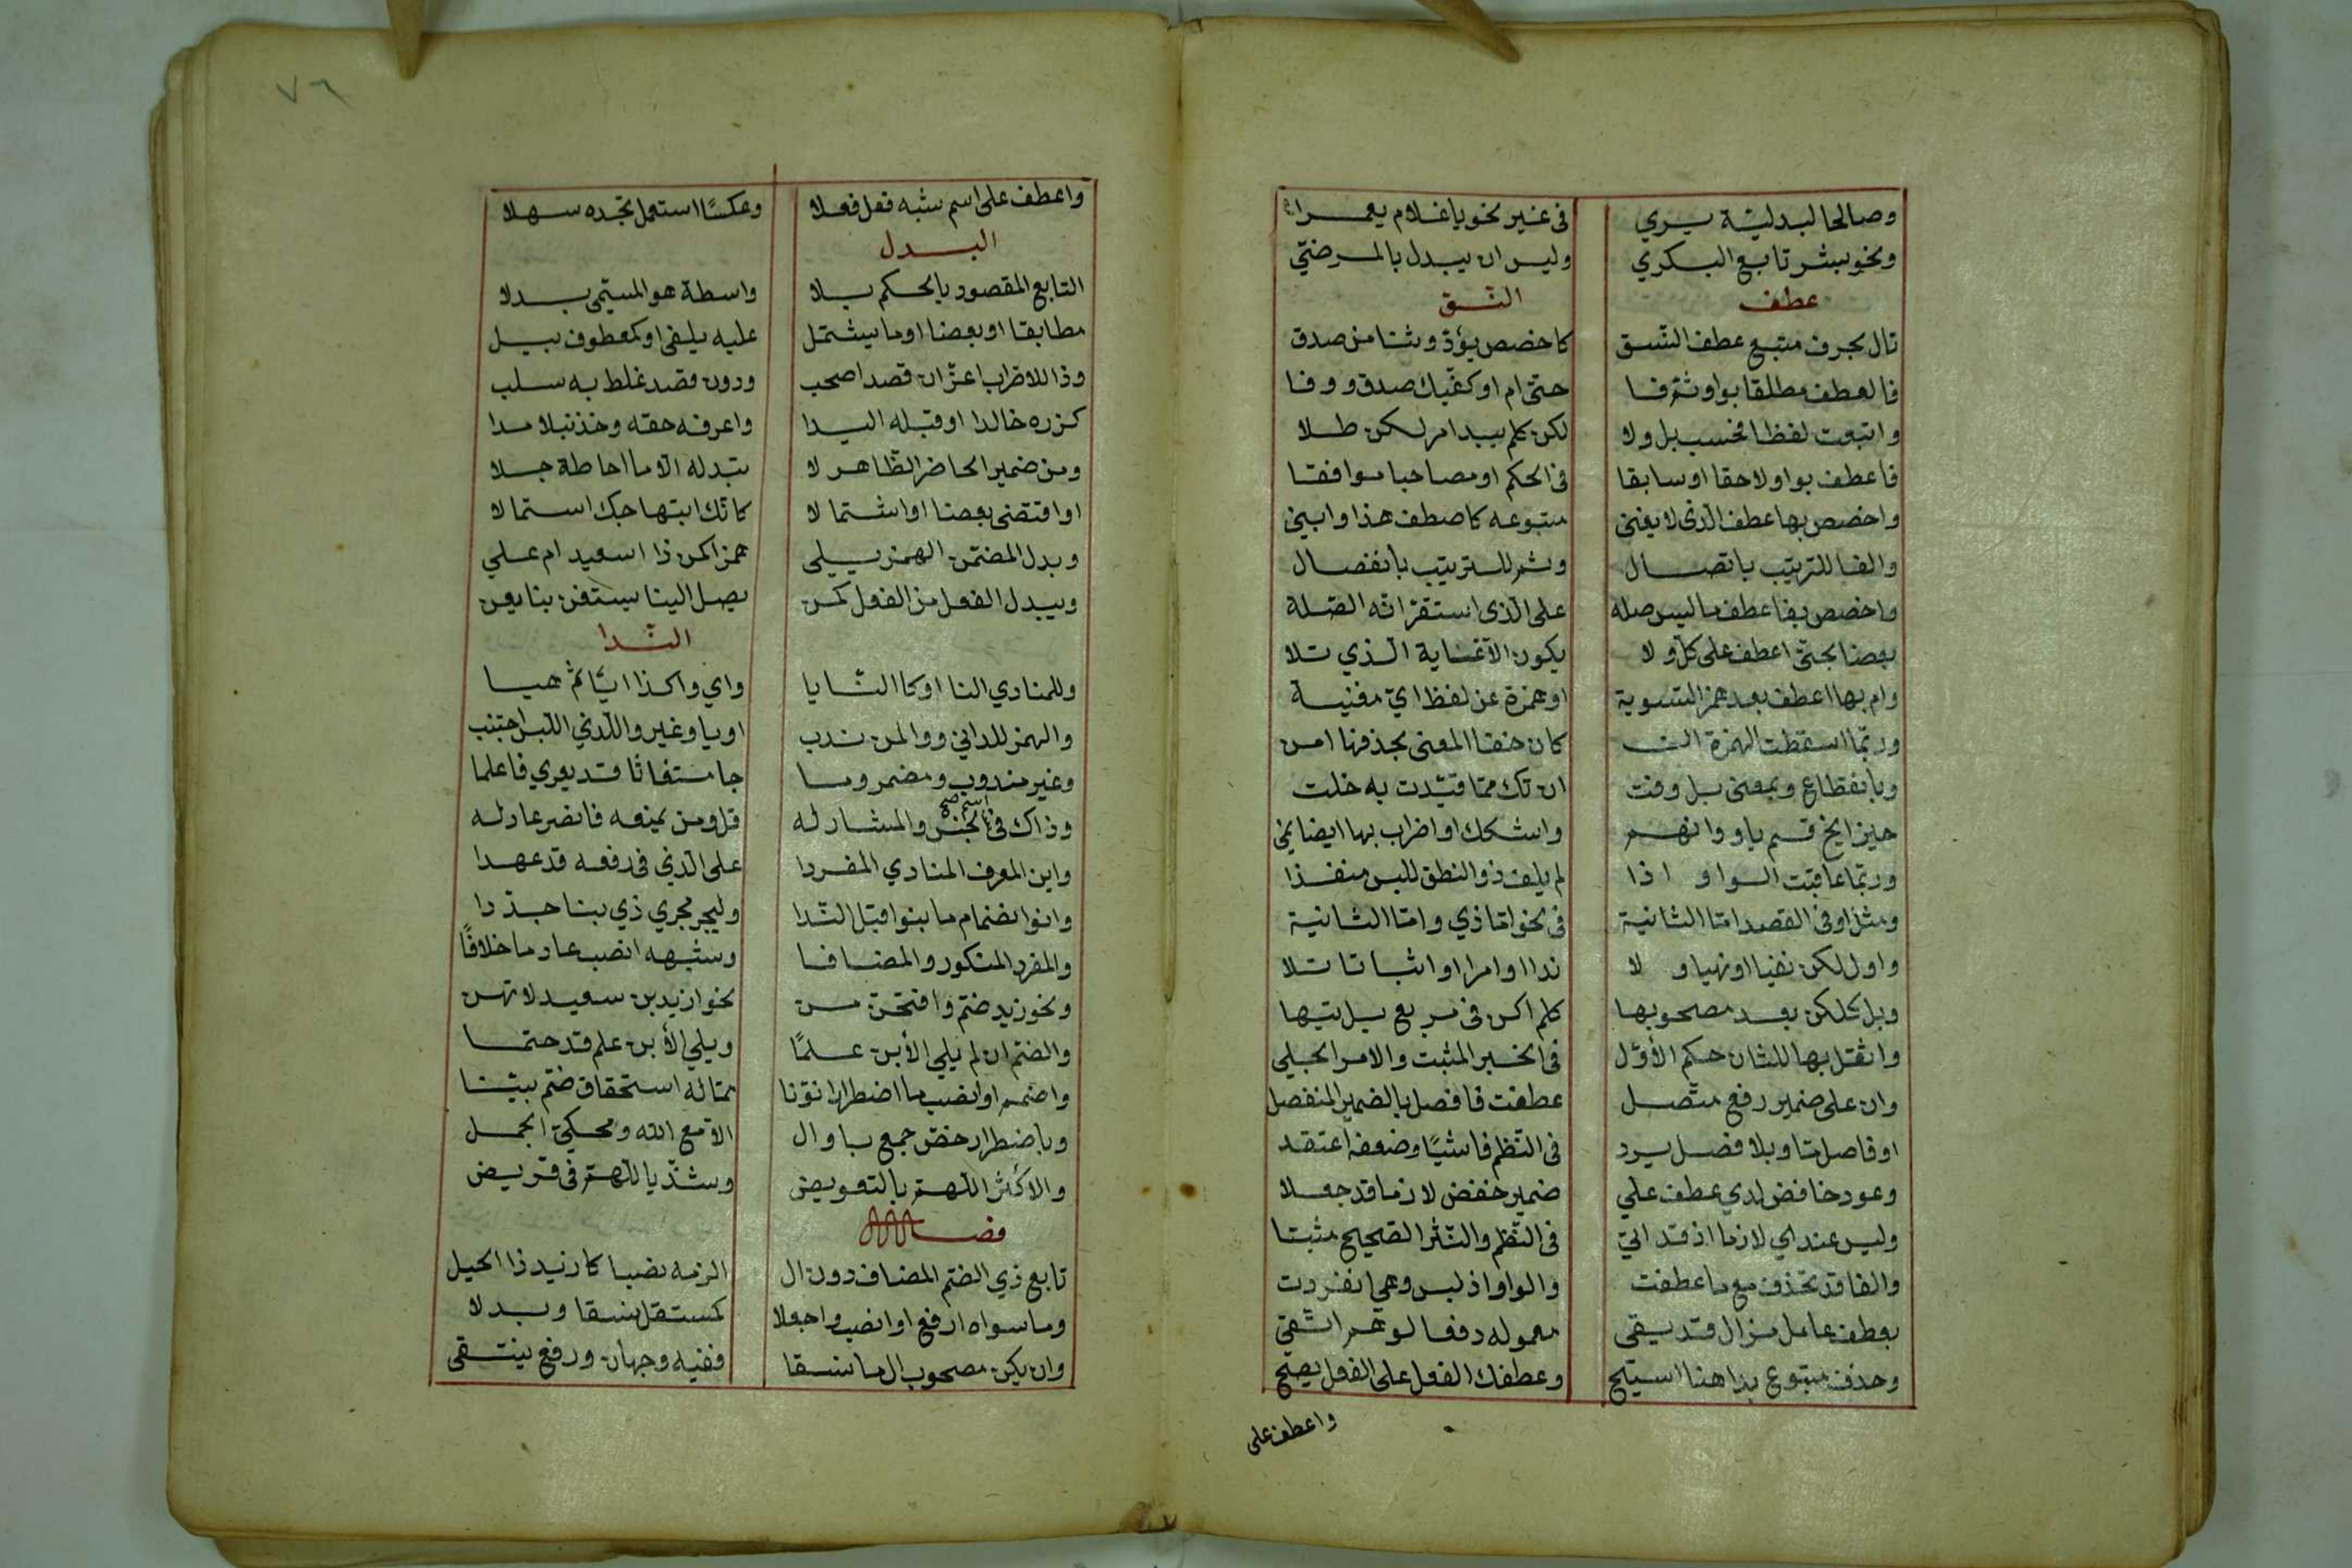 وصالحا لبدلية يري في غير نحو يا غلام يعمرا
ونحو بشر تابع البكري وليس ان يبدل بالمرضي
عطف النسق
تال بحرف متبع عطف النسق كاخصص بود وثنا من صدق
فالعطف مطلقا بواو ثم فا حتى ام او كفيك صدق ووفا
واتبعت لفظا فحسب بل ولا لكن كلم يبد امر لكن طلا
فاعطف بواو لاحقا او سابقا في الحكم او مصاحبا موافقا
واخصص بها عطف الذي لا يغني متبوعه كاصطف هذا وابني
والفا للترتيب باتصال وثم للترتيب بانفصال
واخصص بفا عطف ما ليس صله على الذي استقر انه الصلة
بعضا بحتى اعطف على كل ولا يكون الا غاية الذي تلا
وام بها اعطف بعد همز التسوية او همزة عن لفظ اي مغنية
وربما اسقطت الهمزة ان كان خفا المعنى بحذفها امن
وبانقطاع وبمعنى بل وفت ان تك مما قيدت به خلت
خير ابح قسم باو وابهم واشكك او اضراب بها ايضا نمي
وربما عاقبت الواو اذا لم يلف ذو النطق للبس منفذا
ومثل او في القصد اما الثانية في نحو اما ذي واما الثانية
واول لكن نفيا او نهيا و لا ندا او امرا او اثباتا تلا
وبل كلكن بعد مصحوبها كلم اكن في مربع بل تيها
وانقل بها للثان حكم الأول في الخبر المثبت والامر الجلي
وان على ضمير رفع متصل عطفت فافصل بالضمير المنفصل
او فاصل ما وبلا فصل يرد في النظم فاشيًا وضعفه اعتقد
وعود خافض لدي عطف علي ضمير خفض لازما قد جعلا
وليس عندي لازما اذ قد اتي في النظم والنثر الصحيح مثبتا
والفا قد تحذف مع ما عطفت والواو اذ لبس وهي انفردت
بعطف عامل مزال قد يبقى معموله دفعا لوهم اتقي
وحذف متبوع بدا هنا استبح وعطفك الفعل على الفعل يصح
واعطف على
٧٦
واعطف على اسم شبه فعل فعلا وعكسًا استعمل تجده سهلا
البدل
التابع المقصود بالحكم بلا واسطة هو المسمى بدلا
مطابقا او بعضا او ما يشتمل عليه يلفى او كمعطوف ببل
وذا للاضراب اعز ان قصدا صحب ودون قصد غلط به سلب
كزره خالدا او قبله اليدا واعرفه حقه وخذ نبلا مدا
ومن ضمير الحاضر الظاهر لا تبدله الا ما احاطة جلا
او اقتضى بعضا او اشتمالا كانك ابتهاجك استمالا
وبدل المضمن الهمز يلي همزا كمن ذا اسعيد ام علي
ويبدل الفعل من الفعل كمن يصل الينا يستعن بنا يعن
الندا
وللمنادي النا او كالنا يا واي وا كذا ايا ثم هيا
والهمز للداني ووا لمن ندب او يا وغير وا لدي اللبس اجتنب
وغير مندوب ومضمر وما جا مستغاثا قد يعري فاعلما
وذاك في اسم الجنس والمشار له قل ومن يمنعه فانصر عاذله
صح
وابن المعرف المنادي المفردا على الذي في رفعه قد عهدا
وانوا انضمام ما بنوا قبل الندا وليجر مجري ذي بنا جددا
والمفرد المنكور والمضافا وشبهه انصب عادما خلافًا
ونحو زيد ضم وافتحن من نحو ازيد بن سعيد لا تهن
والضم ان لم يلي الأبن علمًا ويلي الأبن علم قد حتما
واضمم او انصب ما اضطرارا نونا مما له استحقاق ضم بينا
وباضطرار خص جمع يا وال الا مع الله ومحكي الجمل
والاكثر اللهم بالتعويض وشذ يا اللهم في قريض
فصل
تابع ذي الضم المضاف دون ال الزمه نصبا كازيد ذا الحيل
وما سواه ارفع او انصب واجعلا كمستقل نسقا وبدلا
وان يكن مصحوب ال ما نسقا ففيه وجهان ورفع ينتقى